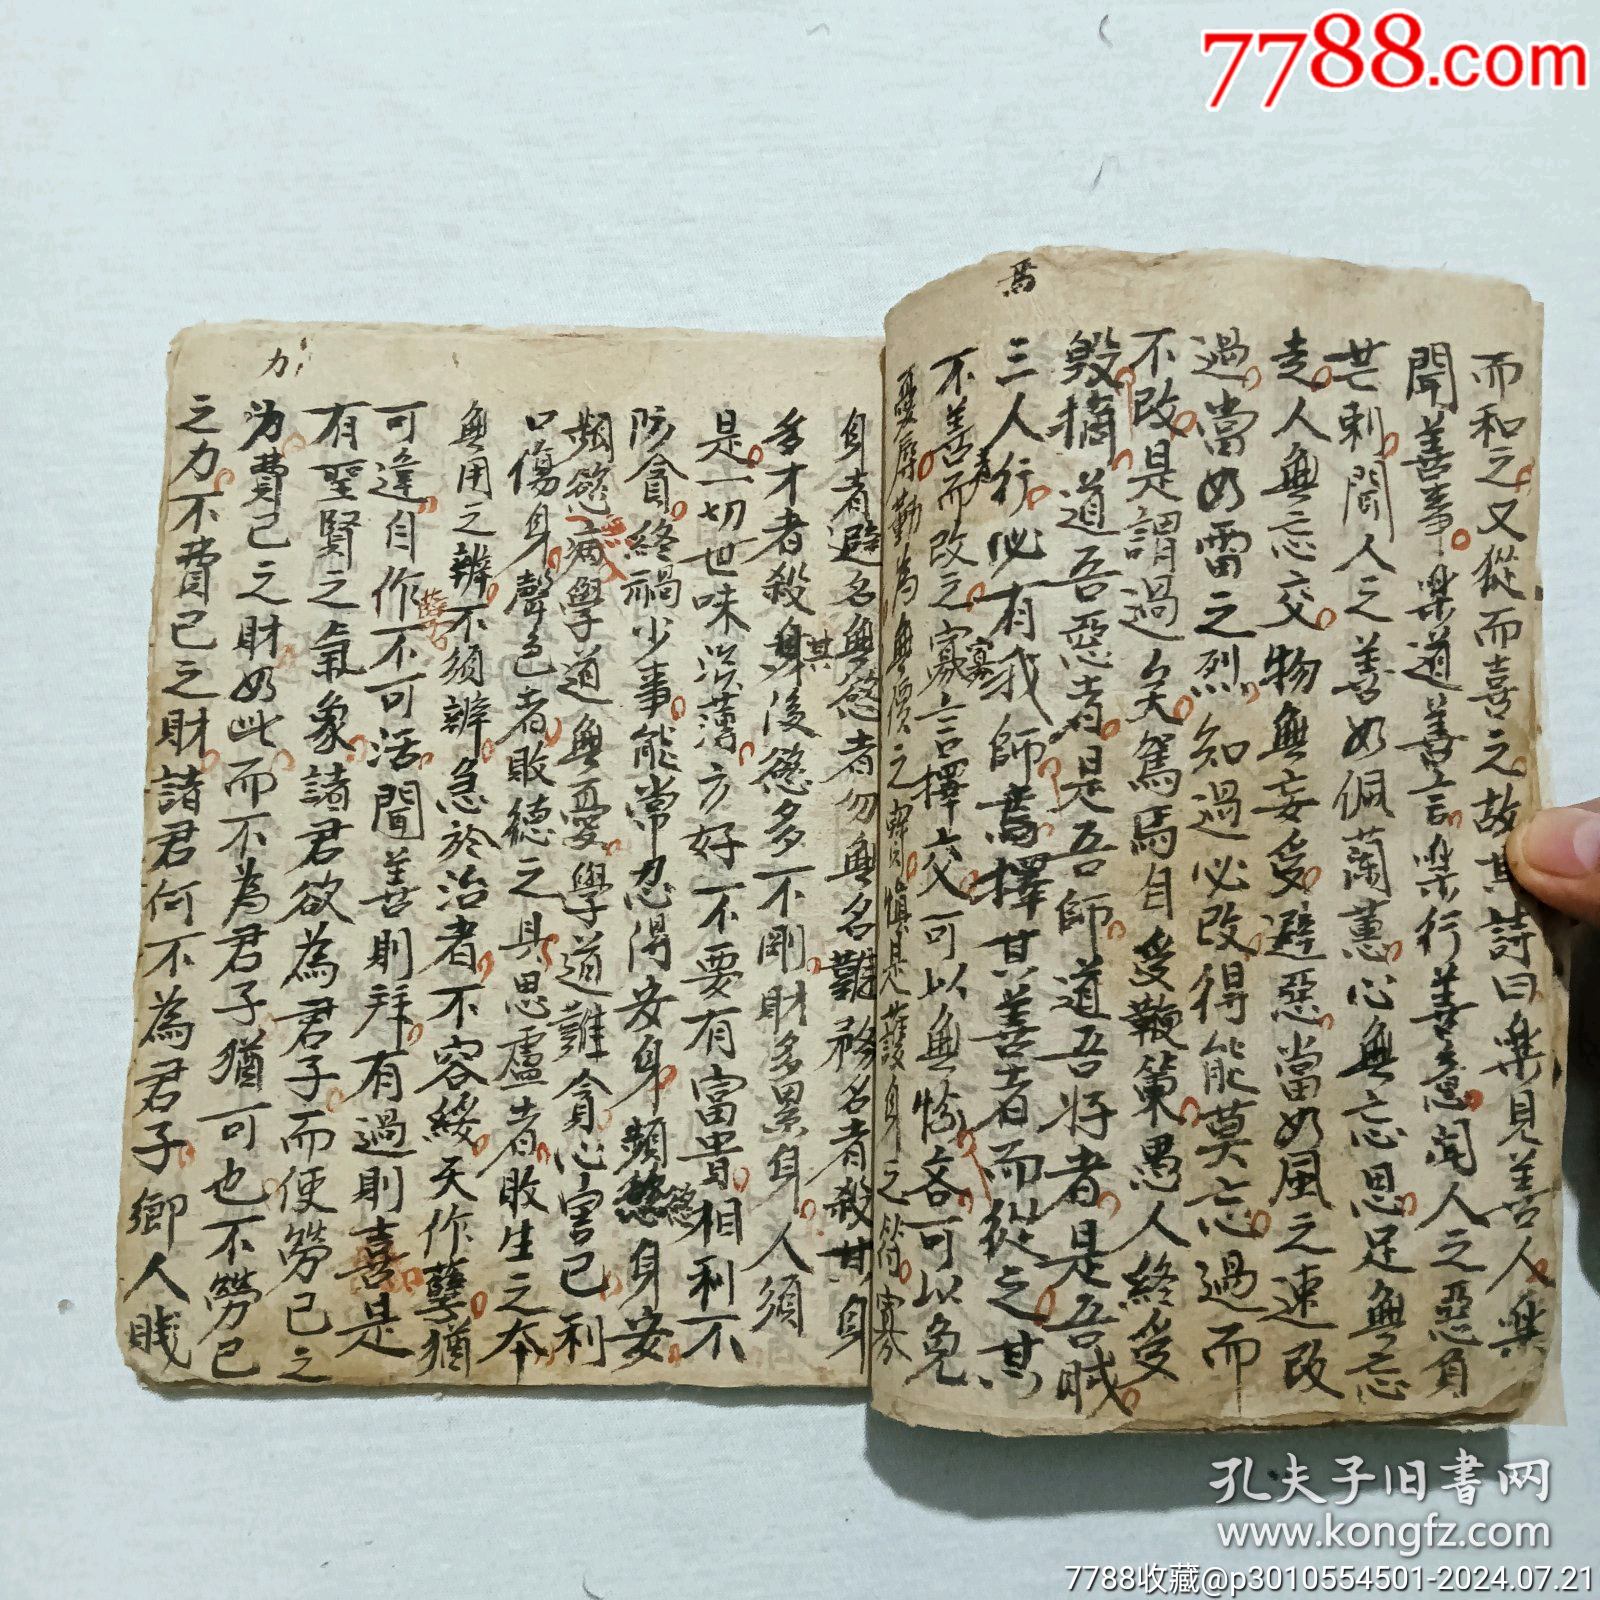 7788.com
焉
而和之又從而喜之故其詩曰樂見善人樂
聞善事樂道善言樂行善意聞人之惡負
芒刺聞人之善如佩蘭蕙心無忘思足無忘
走人無忘交物無妄受避惡當如風之速改
過當如雷之烈知過必改得能莫忘過而
不改是謂過矣駑馬自受鞭策愚人終受
毀捶道吾惡者是吾師道吾好者是吾賊
三人行必有我師焉擇其善者而從之其
不善者而改之寡言擇交可以無悔吝可以免
憂辱勤為無價之寶慎是護身之符寡
身者避名無慾者勿無名難務名者殺其身
多才者殺其身後慾多不剛財多累身人須
是一切世味淡薄方好不要有富貴相利不
防貪終禍少事能常忍得安身頻慾身安
頻慾病學道無憂學道難貪心害己利
口傷身聲色者敗德之具思慮者敗生之本
無用之辨不須辨急於治者不容緩天作孽猶
可違自作孽不可活聞善則拜有過則喜是
有聖賢之氣象諸君欲為君子而使勞己之
力
为費己之財如此而不為君子猶可也不勞己
之力不費己之財諸君何不為君子鄉人賤
孔夫子旧书网
www.kongfz.com
7788收藏@p3010554501-2024.07.21